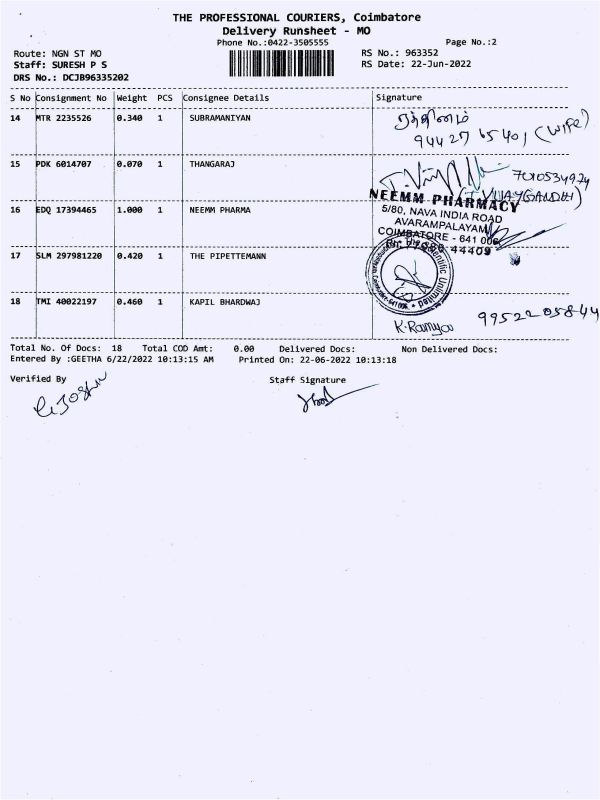 THE PROFESSIONAL COURIERS, Coimbatore
Delivery Runsheet - MO
Phone No.:0422-3505555 Page No.:2
Route: NGN ST MO RS No.: 963352
Staff: SURESH P S RS Date: 22-Jun-2022
DRS No.: DCJB96335202
S No Consignment No Weight PCS Consignee Details Signature
14 MTR 2235526 0.340 1 SUBRAMANIYAN
ரத்தினம்
94427 65401 (wife)
15 PDK 6014707 0.070 1 THANGARAJ
7010534974
(T.VIJAYGANDHI)
16 EDQ 17394465 1.000 1 NEEMM PHARMA
NEEMM PHARMACY
5/80, NAVA INDIA ROAD
AVARAMPALAYAM
COIMBATORE - 641 006
44409
17 SLM 297981220 0.420 1 THE PIPETTEMANN
18 TMI 40022197 0.460 1 KAPIL BHARDWAJ
K.Ramya 99522 05844
Total No. Of Docs: 18 Total COD Amt: 0.00 Delivered Docs: Non Delivered Docs:
Entered By :GEETHA 6/22/2022 10:13:15 AM Printed On: 22-06-2022 10:13:18
Verified By Staff Signature